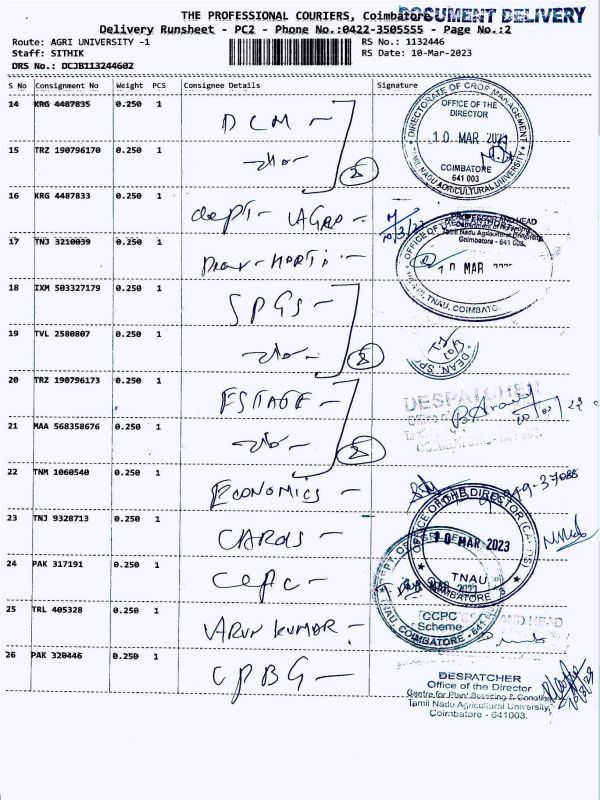 THE PROFESSIONAL COURIERS, Coimbatore
DOCUMENT DELIVERY
Delivery Runsheet - PC2 - Phone No.:0422-3505555 - Page No.:2
Route: AGRI UNIVERSITY -1
RS No.: 1132446
Staff: SITHIK
RS Date: 10-Mar-2023
DRS No.: DCJB113244602
S No Consignment No Weight PCS Consignee Details Signature
14 KRG 4487835 0.250 1 DCM -
15 TRZ 190796170 0.250 1 -do-
2
DIRECTORATE OF CROP MANAGEMENT
OFFICE OF THE
DIRECTOR
10 MAR 2023
COIMBATORE
641 003
TAMIL NADU AGRICULTURAL UNIVERSITY
16 KRG 4487833 0.250 1 dept - AGRO -
10/3/23
17 TNJ 3210039 0.250 1 Dean - HORTI -
AND HEAD
Tamil Nadu Agricultural University
Coimbatore - 641 003.
10 MAR
TNAU, COIMBATO
18 IXM 503327179 0.250 1 SPGS -
19 TVL 2580807 0.250 1 -do-
2
DEAN, SPGS
20 TRZ 190796173 0.250 1 ESTATE -
21 MAA 568358676 0.250 1 -do-
2
DESPATCHER
22 TNM 1060540 0.250 1 ECONOMICS -
23 TNJ 9328713 0.250 1 CARDS -
OFFICE OF THE DIRECTOR (CARDS)
10 MAR 2023
TNAU
COIMBATORE
24 PAK 317191 0.250 1 CCPC -
TNAU, COIMBATORE - 641
CCPC
Scheme
AND HEAD
25 TRL 405328 0.250 1 VARUN KUMAR -
26 PAK 320446 0.250 1 CPBG -
DESPATCHER
Office of the Director
Centre for Plant Breeding & Genetics
Tamil Nadu Agricultural University,
Coimbatore - 641003.